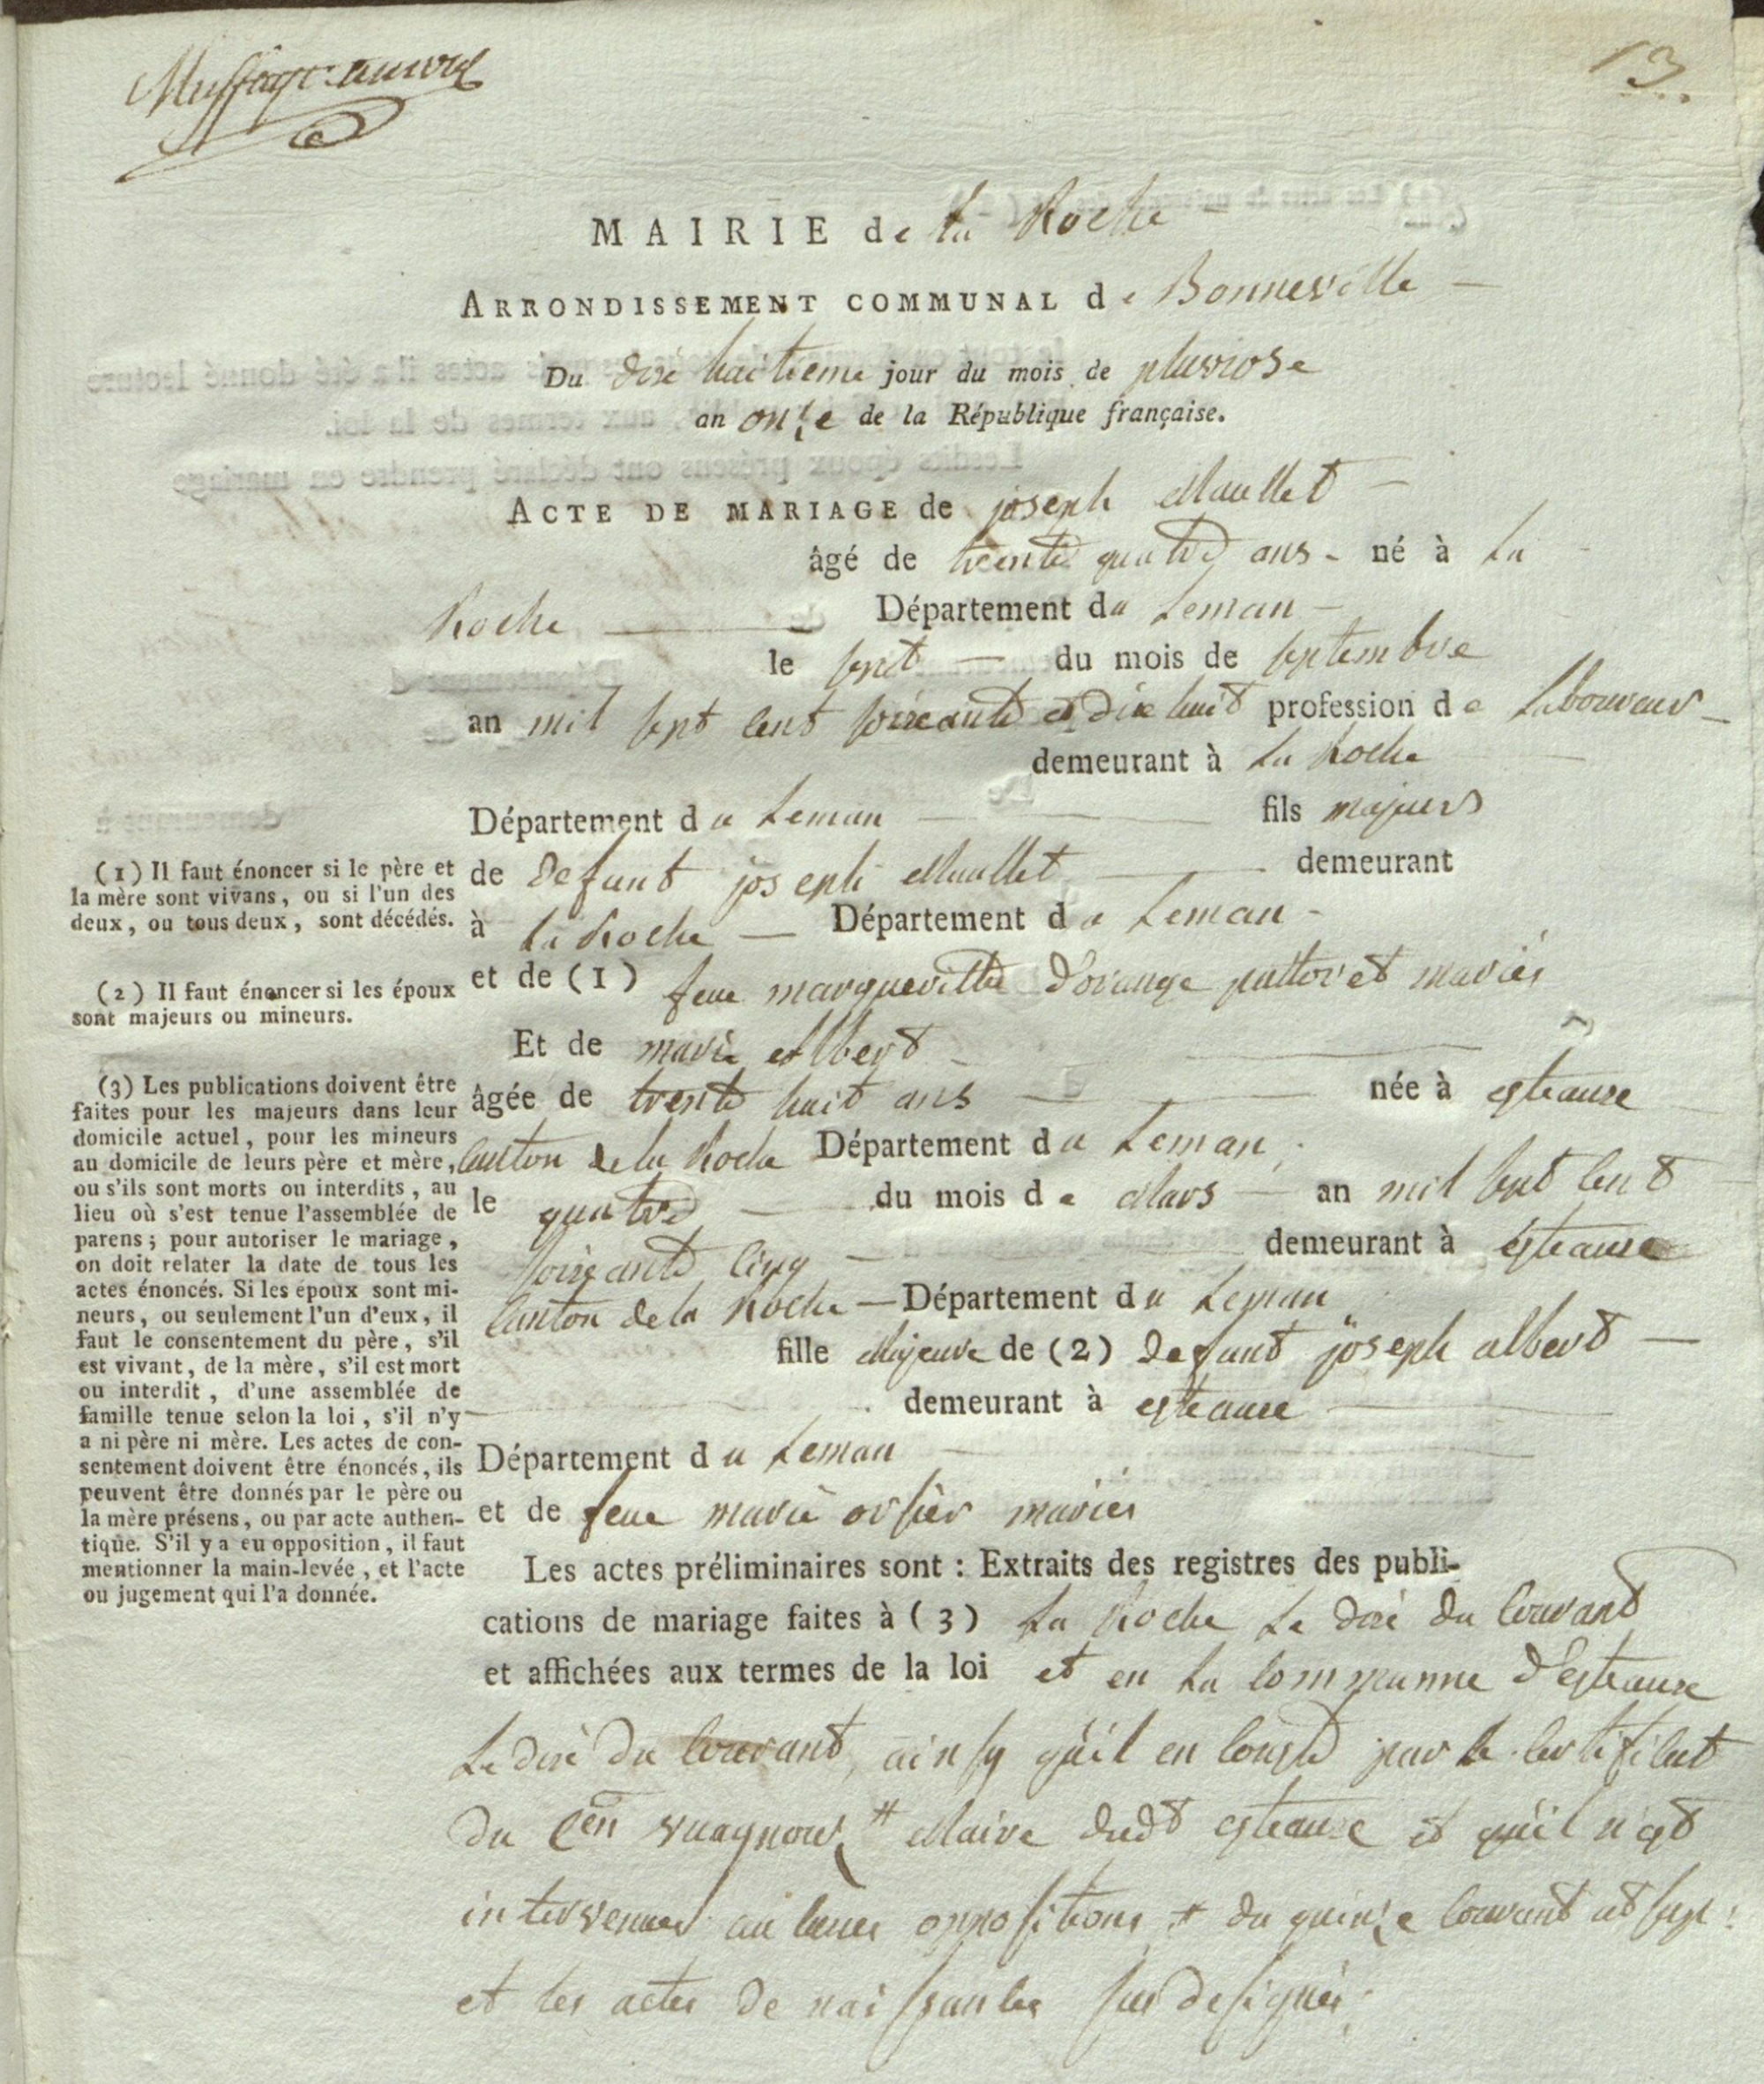 13.
MAIRIE de La Roche
ARRONDISSEMENT COMMUNAL de Bonneville
Du dix huitieme jour du mois de pluviose
an onze de la République française.
ACTE DE MARIAGE de joseph Maullet
âgé de trente quatre ans né à La
Roche Département du Leman
le sept du mois de septembre
an mil sept cent soixante et dix huit profession de Laboureur
demeurant à La Roche
Département du Leman fils majeur
de defunt joseph Maullet demeurant
à La Roche Département du Leman
et de (1) feue margueritte Dorange mariés
Et de marie Albert
âgée de trente huit ans née à esteaux
Canton de la Roche Département du Leman
le quatre du mois de Mars an mil sept cent
soixante cinq demeurant à esteaux
Canton de la Roche Département du Leman
fille Majeure de (2) defunt joseph albert
demeurant à esteaux
Département du Leman
et de feue marie orsier mariés
Les actes préliminaires sont : Extraits des registres des publi-
cations de mariage faites à (3) La Roche Le dix du Courant
et affichées aux termes de la loi et en La Commune d'esteaux
Le dix du Courant, ainsy qu'il en Conste par le Certificat
du Cen vuagnoux # Maire dudt esteaux et qu'il n'est
intervenues aucunes oppositions # du quinze Courant
et les actes de naissances sus designés
(1) Il faut énoncer si le père et
la mère sont vivans, ou si l'un des
deux, ou tous deux, sont décédés.
(2) Il faut énoncer si les époux
sont majeurs ou mineurs.
(3) Les publications doivent être
faites pour les majeurs dans leur
domicile actuel, pour les mineurs
au domicile de leurs père et mère,
ou s'ils sont morts ou interdits, au
lieu où s'est tenue l'assemblée de
parens ; pour autoriser le mariage,
on doit relater la date de tous les
actes énoncés. Si les époux sont mi-
neurs, ou seulement l'un d'eux, il
faut le consentement du père, s'il
est vivant, de la mère, s'il est mort
ou interdit, d'une assemblée de
famille tenue selon la loi, s'il n'y
a ni père ni mère. Les actes de con-
sentement doivent être énoncés, ils
peuvent être donnés par le père ou
la mère présens, ou par acte authen-
tique. S'il y a eu opposition, il faut
mentionner la main-levée, et l'acte
ou jugement qui l'a donnée.